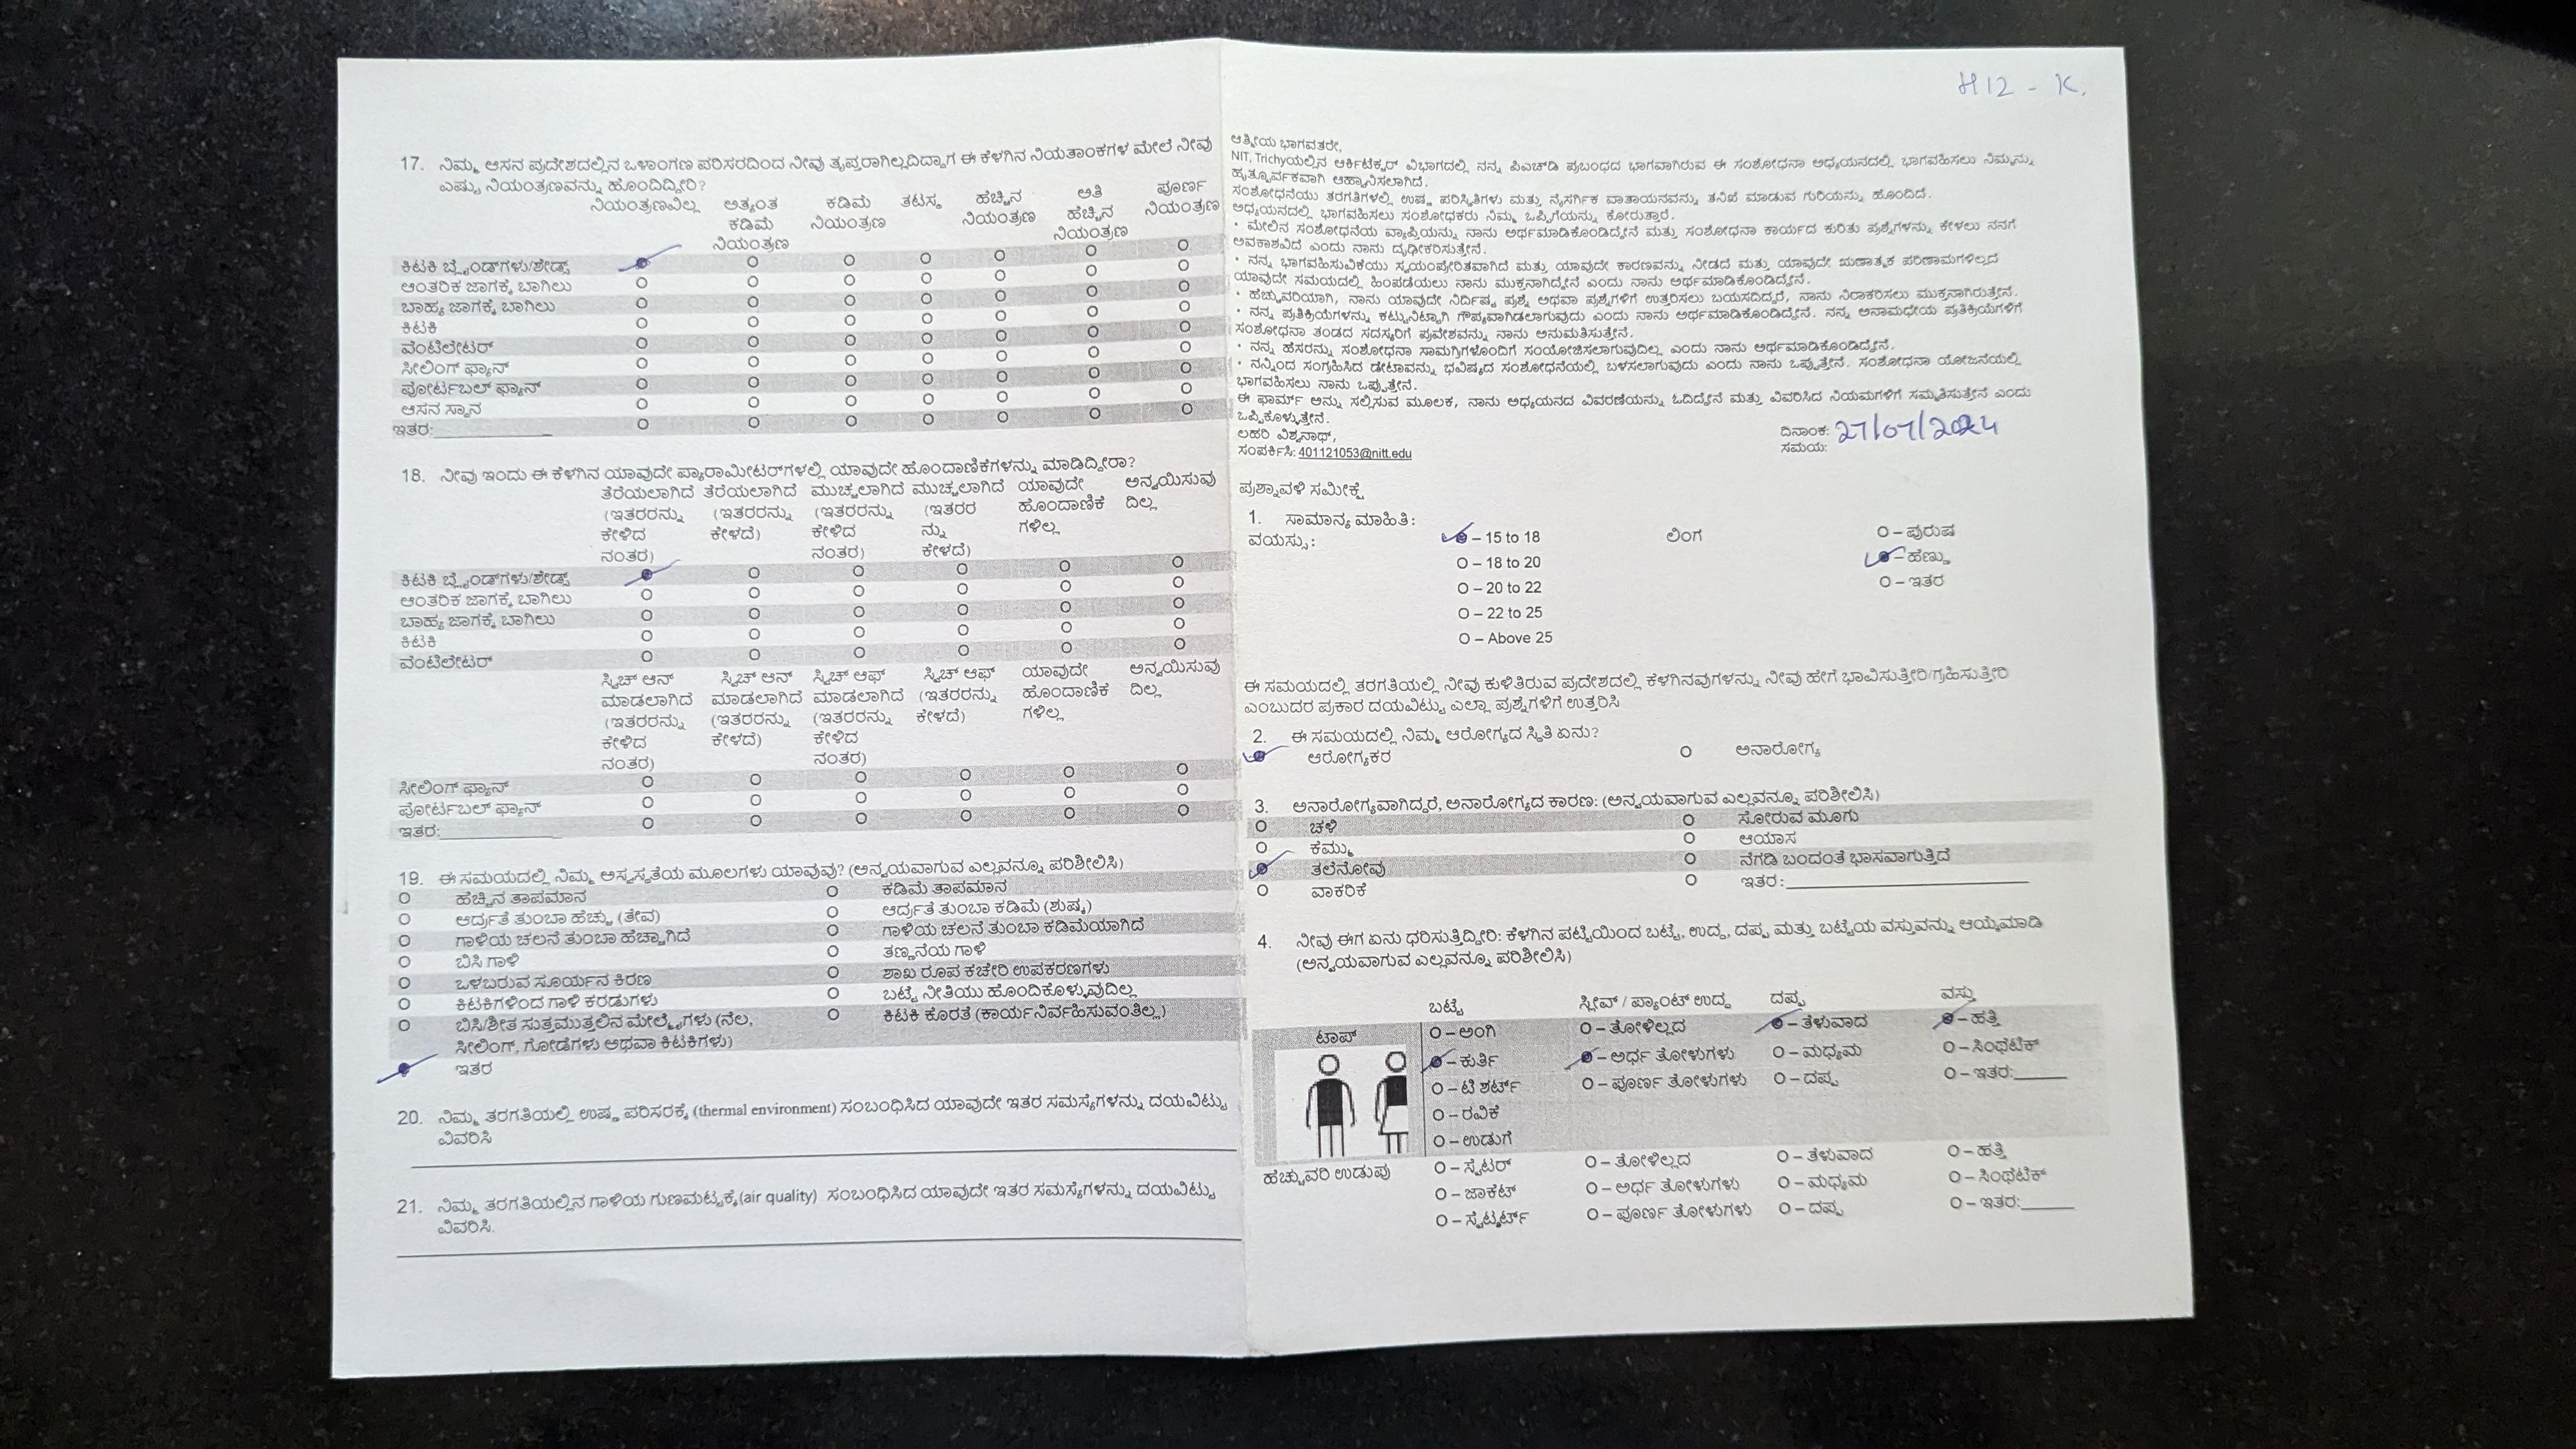 17. ನಿಮ್ಮ ಆಸನ ಪ್ರದೇಶದಲ್ಲಿನ ಒಳಾಂಗಣ ಪರಿಸರದಿಂದ ನೀವು ತೃಪ್ತರಾಗಿಲ್ಲದಿದ್ದಾಗ ಈ ಕೆಳಗಿನ ನಿಯತಾಂಕಗಳ ಮೇಲೆ ನೀವು
ಎಷ್ಟು ನಿಯಂತ್ರಣವನ್ನು ಹೊಂದಿದ್ದೀರಿ?
ನಿಯಂತ್ರಣವಿಲ್ಲ ಅತ್ಯಂತ ಕಡಿಮೆ ನಿಯಂತ್ರಣ ಕಡಿಮೆ ನಿಯಂತ್ರಣ ತಟಸ್ಥ ಹೆಚ್ಚಿನ ನಿಯಂತ್ರಣ ಅತಿ ಹೆಚ್ಚಿನ ನಿಯಂತ್ರಣ ಪೂರ್ಣ ನಿಯಂತ್ರಣ
ಕಿಟಕಿ ಬ್ಲೈಂಡ್‌ಗಳು/ಶೇಡ್ಸ್
ಆಂತರಿಕ ಜಾಗಕ್ಕೆ ಬಾಗಿಲು
ಬಾಹ್ಯ ಜಾಗಕ್ಕೆ ಬಾಗಿಲು
ಕಿಟಕಿ
ವೆಂಟಿಲೇಟರ್
ಸೀಲಿಂಗ್ ಫ್ಯಾನ್
ಪೋರ್ಟಬಲ್ ಫ್ಯಾನ್
ಆಸನ ಸ್ಥಾನ
ಇತರ:
18. ನೀವು ಇಂದು ಈ ಕೆಳಗಿನ ಯಾವುದೇ ಪ್ಯಾರಾಮೀಟರ್‌ಗಳಲ್ಲಿ ಯಾವುದೇ ಹೊಂದಾಣಿಕೆಗಳನ್ನು ಮಾಡಿದ್ದೀರಾ?
ತೆರೆಯಲಾಗಿದೆ (ಇತರರನ್ನು ಕೇಳಿದ ನಂತರ) ತೆರೆಯಲಾಗಿದೆ (ಇತರರನ್ನು ಕೇಳದೆ) ಮುಚ್ಚಲಾಗಿದೆ (ಇತರರನ್ನು ಕೇಳಿದ ನಂತರ) ಮುಚ್ಚಲಾಗಿದೆ (ಇತರರ ನ್ನು ಕೇಳದೆ) ಯಾವುದೇ ಹೊಂದಾಣಿಕೆ ಗಳಿಲ್ಲ ಅನ್ವಯಿಸುವು ದಿಲ್ಲ
ಕಿಟಕಿ ಬ್ಲೈಂಡ್‌ಗಳು/ಶೇಡ್ಸ್
ಆಂತರಿಕ ಜಾಗಕ್ಕೆ ಬಾಗಿಲು
ಬಾಹ್ಯ ಜಾಗಕ್ಕೆ ಬಾಗಿಲು
ಕಿಟಕಿ
ವೆಂಟಿಲೇಟರ್
ಸ್ವಿಚ್ ಆನ್ ಮಾಡಲಾಗಿದೆ (ಇತರರನ್ನು ಕೇಳಿದ ನಂತರ) ಸ್ವಿಚ್ ಆನ್ ಮಾಡಲಾಗಿದೆ (ಇತರರನ್ನು ಕೇಳದೆ) ಸ್ವಿಚ್ ಆಫ್ ಮಾಡಲಾಗಿದೆ (ಇತರರನ್ನು ಕೇಳಿದ ನಂತರ) ಸ್ವಿಚ್ ಆಫ್ (ಇತರರನ್ನು ಕೇಳದೆ) ಯಾವುದೇ ಹೊಂದಾಣಿಕೆ ಗಳಿಲ್ಲ ಅನ್ವಯಿಸುವು ದಿಲ್ಲ
ಸೀಲಿಂಗ್ ಫ್ಯಾನ್
ಪೋರ್ಟಬಲ್ ಫ್ಯಾನ್
ಇತರ:
19. ಈ ಸಮಯದಲ್ಲಿ ನಿಮ್ಮ ಅಸ್ವಸ್ಥತೆಯ ಮೂಲಗಳು ಯಾವುವು? (ಅನ್ವಯವಾಗುವ ಎಲ್ಲವನ್ನೂ ಪರಿಶೀಲಿಸಿ)
ಹೆಚ್ಚಿನ ತಾಪಮಾನ ಕಡಿಮೆ ತಾಪಮಾನ
ಆರ್ದ್ರತೆ ತುಂಬಾ ಹೆಚ್ಚು (ತೇವ) ಆರ್ದ್ರತೆ ತುಂಬಾ ಕಡಿಮೆ (ಶುಷ್ಕ)
ಗಾಳಿಯ ಚಲನೆ ತುಂಬಾ ಹೆಚ್ಚಾಗಿದೆ ಗಾಳಿಯ ಚಲನೆ ತುಂಬಾ ಕಡಿಮೆಯಾಗಿದೆ
ಬಿಸಿ ಗಾಳಿ ತಣ್ಣನೆಯ ಗಾಳಿ
ಒಳಬರುವ ಸೂರ್ಯನ ಕಿರಣ ಶಾಖ ರೂಪ ಕಚೇರಿ ಉಪಕರಣಗಳು
ಕಿಟಕಿಗಳಿಂದ ಗಾಳಿ ಕರಡುಗಳು ಬಟ್ಟೆ ನೀತಿಯು ಹೊಂದಿಕೊಳ್ಳುವುದಿಲ್ಲ
ಬಿಸಿ/ಶೀತ ಸುತ್ತಮುತ್ತಲಿನ ಮೇಲ್ಮೈಗಳು (ನೆಲ, ಕಿಟಕಿ ಕೊರತೆ (ಕಾರ್ಯನಿರ್ವಹಿಸುವಂತಿಲ್ಲ)
ಸೀಲಿಂಗ್, ಗೋಡೆಗಳು ಅಥವಾ ಕಿಟಕಿಗಳು)
ಇತರ
20. ನಿಮ್ಮ ತರಗತಿಯಲ್ಲಿ ಉಷ್ಣ ಪರಿಸರಕ್ಕೆ (thermal environment) ಸಂಬಂಧಿಸಿದ ಯಾವುದೇ ಇತರ ಸಮಸ್ಯೆಗಳನ್ನು ದಯವಿಟ್ಟು
ವಿವರಿಸಿ
21. ನಿಮ್ಮ ತರಗತಿಯಲ್ಲಿನ ಗಾಳಿಯ ಗುಣಮಟ್ಟಕ್ಕೆ(air quality) ಸಂಬಂಧಿಸಿದ ಯಾವುದೇ ಇತರ ಸಮಸ್ಯೆಗಳನ್ನು ದಯವಿಟ್ಟು
ವಿವರಿಸಿ.
H12 - K.
ಆತ್ಮೀಯ ಭಾಗವತರೇ,
NIT, Trichyಯಲ್ಲಿನ ಆರ್ಕಿಟೆಕ್ಚರ್ ವಿಭಾಗದಲ್ಲಿ ನನ್ನ ಪಿಎಚ್‌ಡಿ ಪ್ರಬಂಧದ ಭಾಗವಾಗಿರುವ ಈ ಸಂಶೋಧನಾ ಅಧ್ಯಯನದಲ್ಲಿ ಭಾಗವಹಿಸಲು ನಿಮ್ಮನ್ನು
ಹೃತ್ಪೂರ್ವಕವಾಗಿ ಆಹ್ವಾನಿಸಲಾಗಿದೆ.
ಸಂಶೋಧನೆಯು ತರಗತಿಗಳಲ್ಲಿ ಉಷ್ಣ ಪರಿಸ್ಥಿತಿಗಳು ಮತ್ತು ನೈಸರ್ಗಿಕ ವಾತಾಯನವನ್ನು ತನಿಖೆ ಮಾಡುವ ಗುರಿಯನ್ನು ಹೊಂದಿದೆ.
ಅಧ್ಯಯನದಲ್ಲಿ ಭಾಗವಹಿಸಲು ಸಂಶೋಧಕರು ನಿಮ್ಮ ಒಪ್ಪಿಗೆಯನ್ನು ಕೋರುತ್ತಾರೆ.
• ಮೇಲಿನ ಸಂಶೋಧನೆಯ ವ್ಯಾಪ್ತಿಯನ್ನು ನಾನು ಅರ್ಥಮಾಡಿಕೊಂಡಿದ್ದೇನೆ ಮತ್ತು ಸಂಶೋಧನಾ ಕಾರ್ಯದ ಕುರಿತು ಪ್ರಶ್ನೆಗಳನ್ನು ಕೇಳಲು ನನಗೆ
ಅವಕಾಶವಿದೆ ಎಂದು ನಾನು ದೃಢೀಕರಿಸುತ್ತೇನೆ.
• ನನ್ನ ಭಾಗವಹಿಸುವಿಕೆಯು ಸ್ವಯಂಪ್ರೇರಿತವಾಗಿದೆ ಮತ್ತು ಯಾವುದೇ ಕಾರಣವನ್ನು ನೀಡದೆ ಮತ್ತು ಯಾವುದೇ ಋಣಾತ್ಮಕ ಪರಿಣಾಮಗಳಿಲ್ಲದೆ
ಯಾವುದೇ ಸಮಯದಲ್ಲಿ ಹಿಂಪಡೆಯಲು ನಾನು ಮುಕ್ತನಾಗಿದ್ದೇನೆ ಎಂದು ನಾನು ಅರ್ಥಮಾಡಿಕೊಂಡಿದ್ದೇನೆ.
• ಹೆಚ್ಚುವರಿಯಾಗಿ, ನಾನು ಯಾವುದೇ ನಿರ್ದಿಷ್ಟ ಪ್ರಶ್ನೆ ಅಥವಾ ಪ್ರಶ್ನೆಗಳಿಗೆ ಉತ್ತರಿಸಲು ಬಯಸದಿದ್ದರೆ, ನಾನು ನಿರಾಕರಿಸಲು ಮುಕ್ತನಾಗಿರುತ್ತೇನೆ.
• ನನ್ನ ಪ್ರತಿಕ್ರಿಯೆಗಳನ್ನು ಕಟ್ಟುನಿಟ್ಟಾಗಿ ಗೌಪ್ಯವಾಗಿಡಲಾಗುವುದು ಎಂದು ನಾನು ಅರ್ಥಮಾಡಿಕೊಂಡಿದ್ದೇನೆ. ನನ್ನ ಅನಾಮಧೇಯ ಪ್ರತಿಕ್ರಿಯೆಗಳಿಗೆ
ಸಂಶೋಧನಾ ತಂಡದ ಸದಸ್ಯರಿಗೆ ಪ್ರವೇಶವನ್ನು ನಾನು ಅನುಮತಿಸುತ್ತೇನೆ.
• ನನ್ನ ಹೆಸರನ್ನು ಸಂಶೋಧನಾ ಸಾಮಗ್ರಿಗಳೊಂದಿಗೆ ಸಂಯೋಜಿಸಲಾಗುವುದಿಲ್ಲ ಎಂದು ನಾನು ಅರ್ಥಮಾಡಿಕೊಂಡಿದ್ದೇನೆ.
• ನನ್ನಿಂದ ಸಂಗ್ರಹಿಸಿದ ಡೇಟಾವನ್ನು ಭವಿಷ್ಯದ ಸಂಶೋಧನೆಯಲ್ಲಿ ಬಳಸಲಾಗುವುದು ಎಂದು ನಾನು ಒಪ್ಪುತ್ತೇನೆ. ಸಂಶೋಧನಾ ಯೋಜನೆಯಲ್ಲಿ
ಭಾಗವಹಿಸಲು ನಾನು ಒಪ್ಪುತ್ತೇನೆ.
ಈ ಫಾರ್ಮ್ ಅನ್ನು ಸಲ್ಲಿಸುವ ಮೂಲಕ, ನಾನು ಅಧ್ಯಯನದ ವಿವರಣೆಯನ್ನು ಓದಿದ್ದೇನೆ ಮತ್ತು ವಿವರಿಸಿದ ನಿಯಮಗಳಿಗೆ ಸಮ್ಮತಿಸುತ್ತೇನೆ ಎಂದು
ಒಪ್ಪಿಕೊಳ್ಳುತ್ತೇನೆ.
ಲಹರಿ ವಿಶ್ವನಾಥ್, ದಿನಾಂಕ: 27/07/2024
ಸಂಪರ್ಕಿಸಿ: 401121053@nitt.edu ಸಮಯ:
ಪ್ರಶ್ನಾವಳಿ ಸಮೀಕ್ಷೆ
1. ಸಾಮಾನ್ಯ ಮಾಹಿತಿ:
ವಯಸ್ಸು: – 15 to 18 ಲಿಂಗ O – ಪುರುಷ
O – 18 to 20 – ಹೆಣ್ಣು
O – 20 to 22 O – ಇತರ
O – 22 to 25
O – Above 25
ಈ ಸಮಯದಲ್ಲಿ ತರಗತಿಯಲ್ಲಿ ನೀವು ಕುಳಿತಿರುವ ಪ್ರದೇಶದಲ್ಲಿ ಕೆಳಗಿನವುಗಳನ್ನು ನೀವು ಹೇಗೆ ಭಾವಿಸುತ್ತೀರಿ/ಗ್ರಹಿಸುತ್ತೀರಿ
ಎಂಬುದರ ಪ್ರಕಾರ ದಯವಿಟ್ಟು ಎಲ್ಲಾ ಪ್ರಶ್ನೆಗಳಿಗೆ ಉತ್ತರಿಸಿ
2. ಈ ಸಮಯದಲ್ಲಿ ನಿಮ್ಮ ಆರೋಗ್ಯದ ಸ್ಥಿತಿ ಏನು?
ಆರೋಗ್ಯಕರ O ಅನಾರೋಗ್ಯ
3. ಅನಾರೋಗ್ಯವಾಗಿದ್ದರೆ, ಅನಾರೋಗ್ಯದ ಕಾರಣ: (ಅನ್ವಯವಾಗುವ ಎಲ್ಲವನ್ನೂ ಪರಿಶೀಲಿಸಿ)
O ಚಳಿ O ಸೋರುವ ಮೂಗು
O ಕೆಮ್ಮು O ಆಯಾಸ
ತಲೆನೋವು O ನೆಗಡಿ ಬಂದಂತೆ ಭಾಸವಾಗುತ್ತಿದೆ
O ವಾಕರಿಕೆ O ಇತರ:
4. ನೀವು ಈಗ ಏನು ಧರಿಸುತ್ತಿದ್ದೀರಿ: ಕೆಳಗಿನ ಪಟ್ಟಿಯಿಂದ ಬಟ್ಟೆ, ಉದ್ದ, ದಪ್ಪ ಮತ್ತು ಬಟ್ಟೆಯ ವಸ್ತುವನ್ನು ಆಯ್ಕೆಮಾಡಿ
(ಅನ್ವಯವಾಗುವ ಎಲ್ಲವನ್ನೂ ಪರಿಶೀಲಿಸಿ)
ಬಟ್ಟೆ ಸ್ಲೀವ್ / ಪ್ಯಾಂಟ್ ಉದ್ದ ದಪ್ಪ ವಸ್ತು
ಟಾಪ್ O – ಅಂಗಿ O – ತೋಳಿಲ್ಲದ – ತೆಳುವಾದ – ಹತ್ತಿ
– ಕುರ್ತಿ – ಅರ್ಧ ತೋಳುಗಳು O – ಮಧ್ಯಮ O – ಸಿಂಥೆಟಿಕ್
O – ಟಿ ಶರ್ಟ್ O – ಪೂರ್ಣ ತೋಳುಗಳು O – ದಪ್ಪ O – ಇತರ:
O – ರವಿಕೆ
O – ಉಡುಗೆ
ಹೆಚ್ಚುವರಿ ಉಡುಪು O – ಸ್ವೆಟರ್ O – ತೋಳಿಲ್ಲದ O – ತೆಳುವಾದ O – ಹತ್ತಿ
O – ಜಾಕೆಟ್ O – ಅರ್ಧ ತೋಳುಗಳು O – ಮಧ್ಯಮ O – ಸಿಂಥೆಟಿಕ್
O – ಸ್ವೆಟ್ಶರ್ಟ್ O – ಪೂರ್ಣ ತೋಳುಗಳು O – ದಪ್ಪ O – ಇತರ: